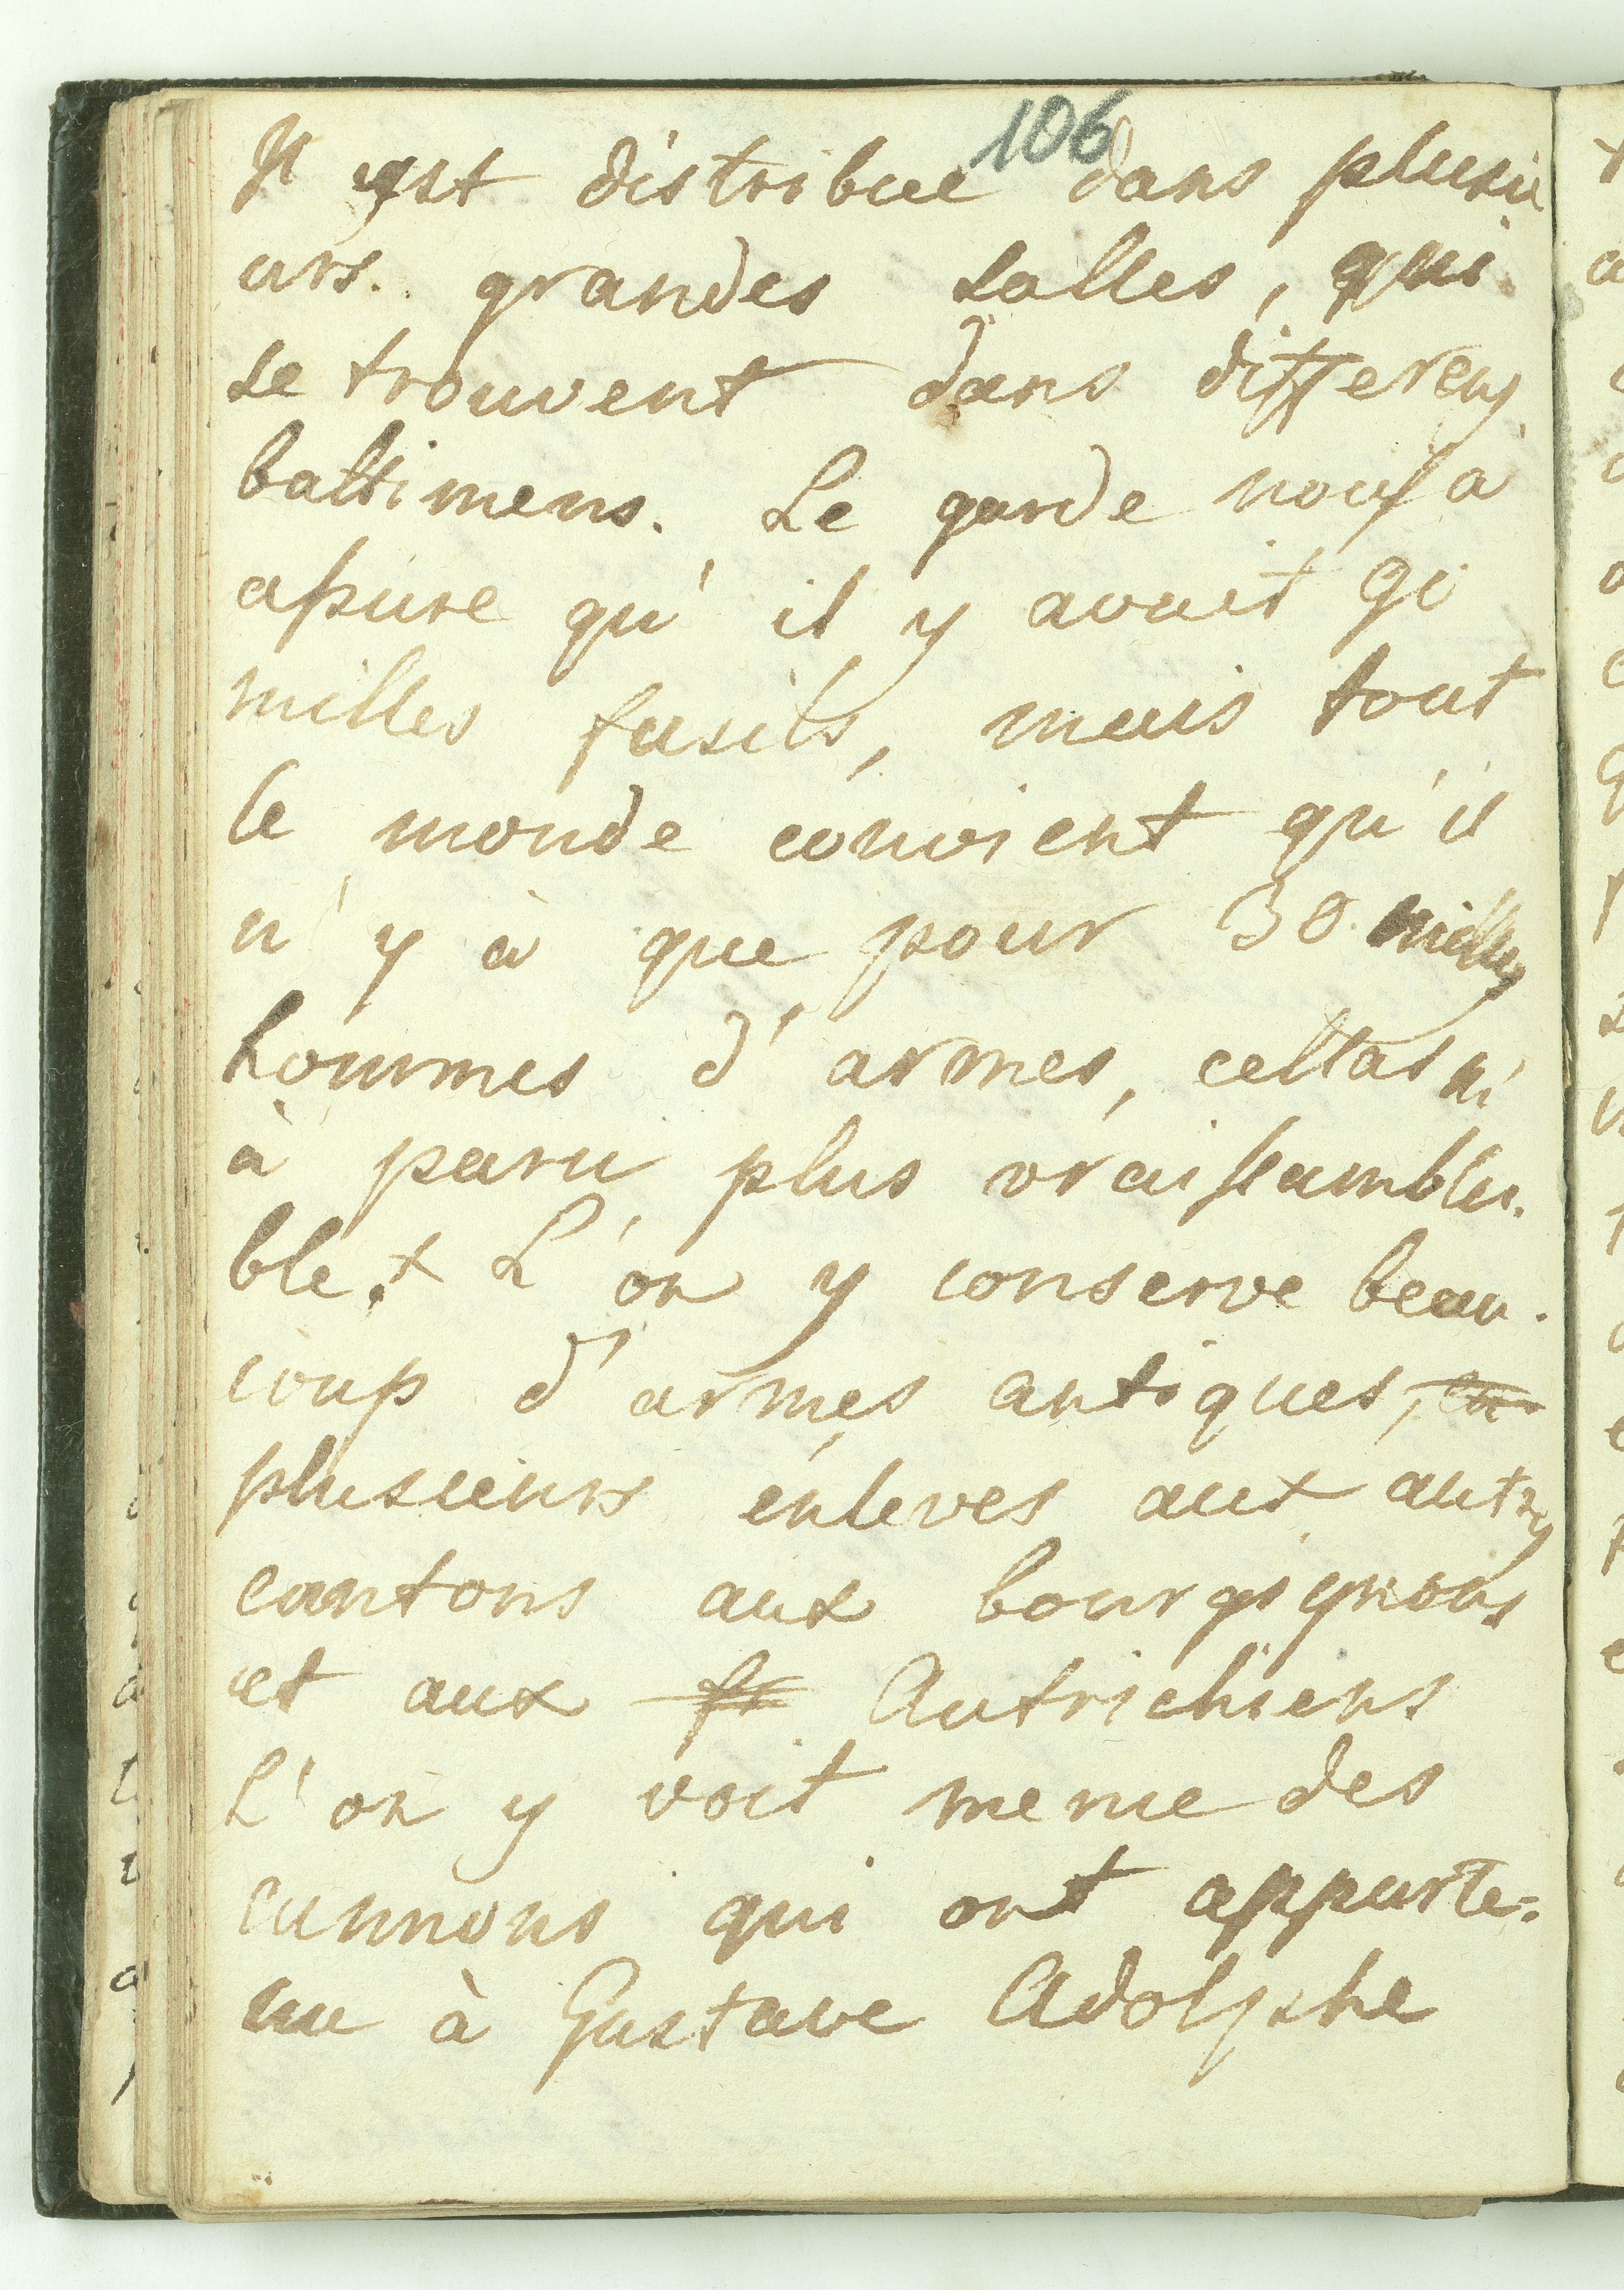 106
Il est distribue dans plusie
urs.. grandes salles, qui
se trouvent dans differens
battimens. Le garde nous a
assure qu'il y avait 90
milles fusils, mais tout
le monde convient qu'il
n'y à que pour 30 milles
hommes d'armes, cella m'
à paru plus vraissembla.
ble. L'on y conserve beau.
coup d'armes antiques, en
plusieurs enleves aux autres
cantons aux bourgignons
et aux fr Autrichiens
L'on y voit meme des
cannons qui ont apparte=
nu à Gustave Adolphe